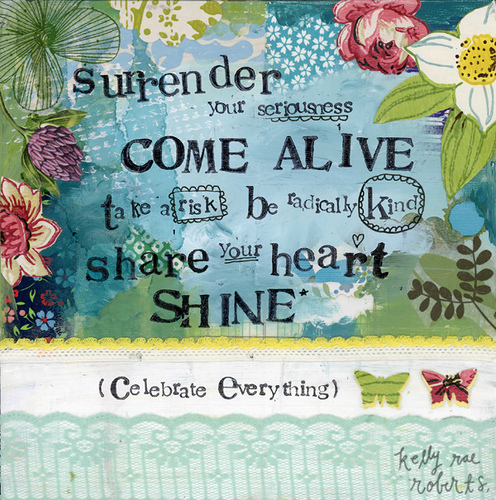 surrender
your seriousness
COME ALIVE
take a risk be radically kind
share your heart
SHINE*
(Celebrate Everything)
kelly rae
roberts.